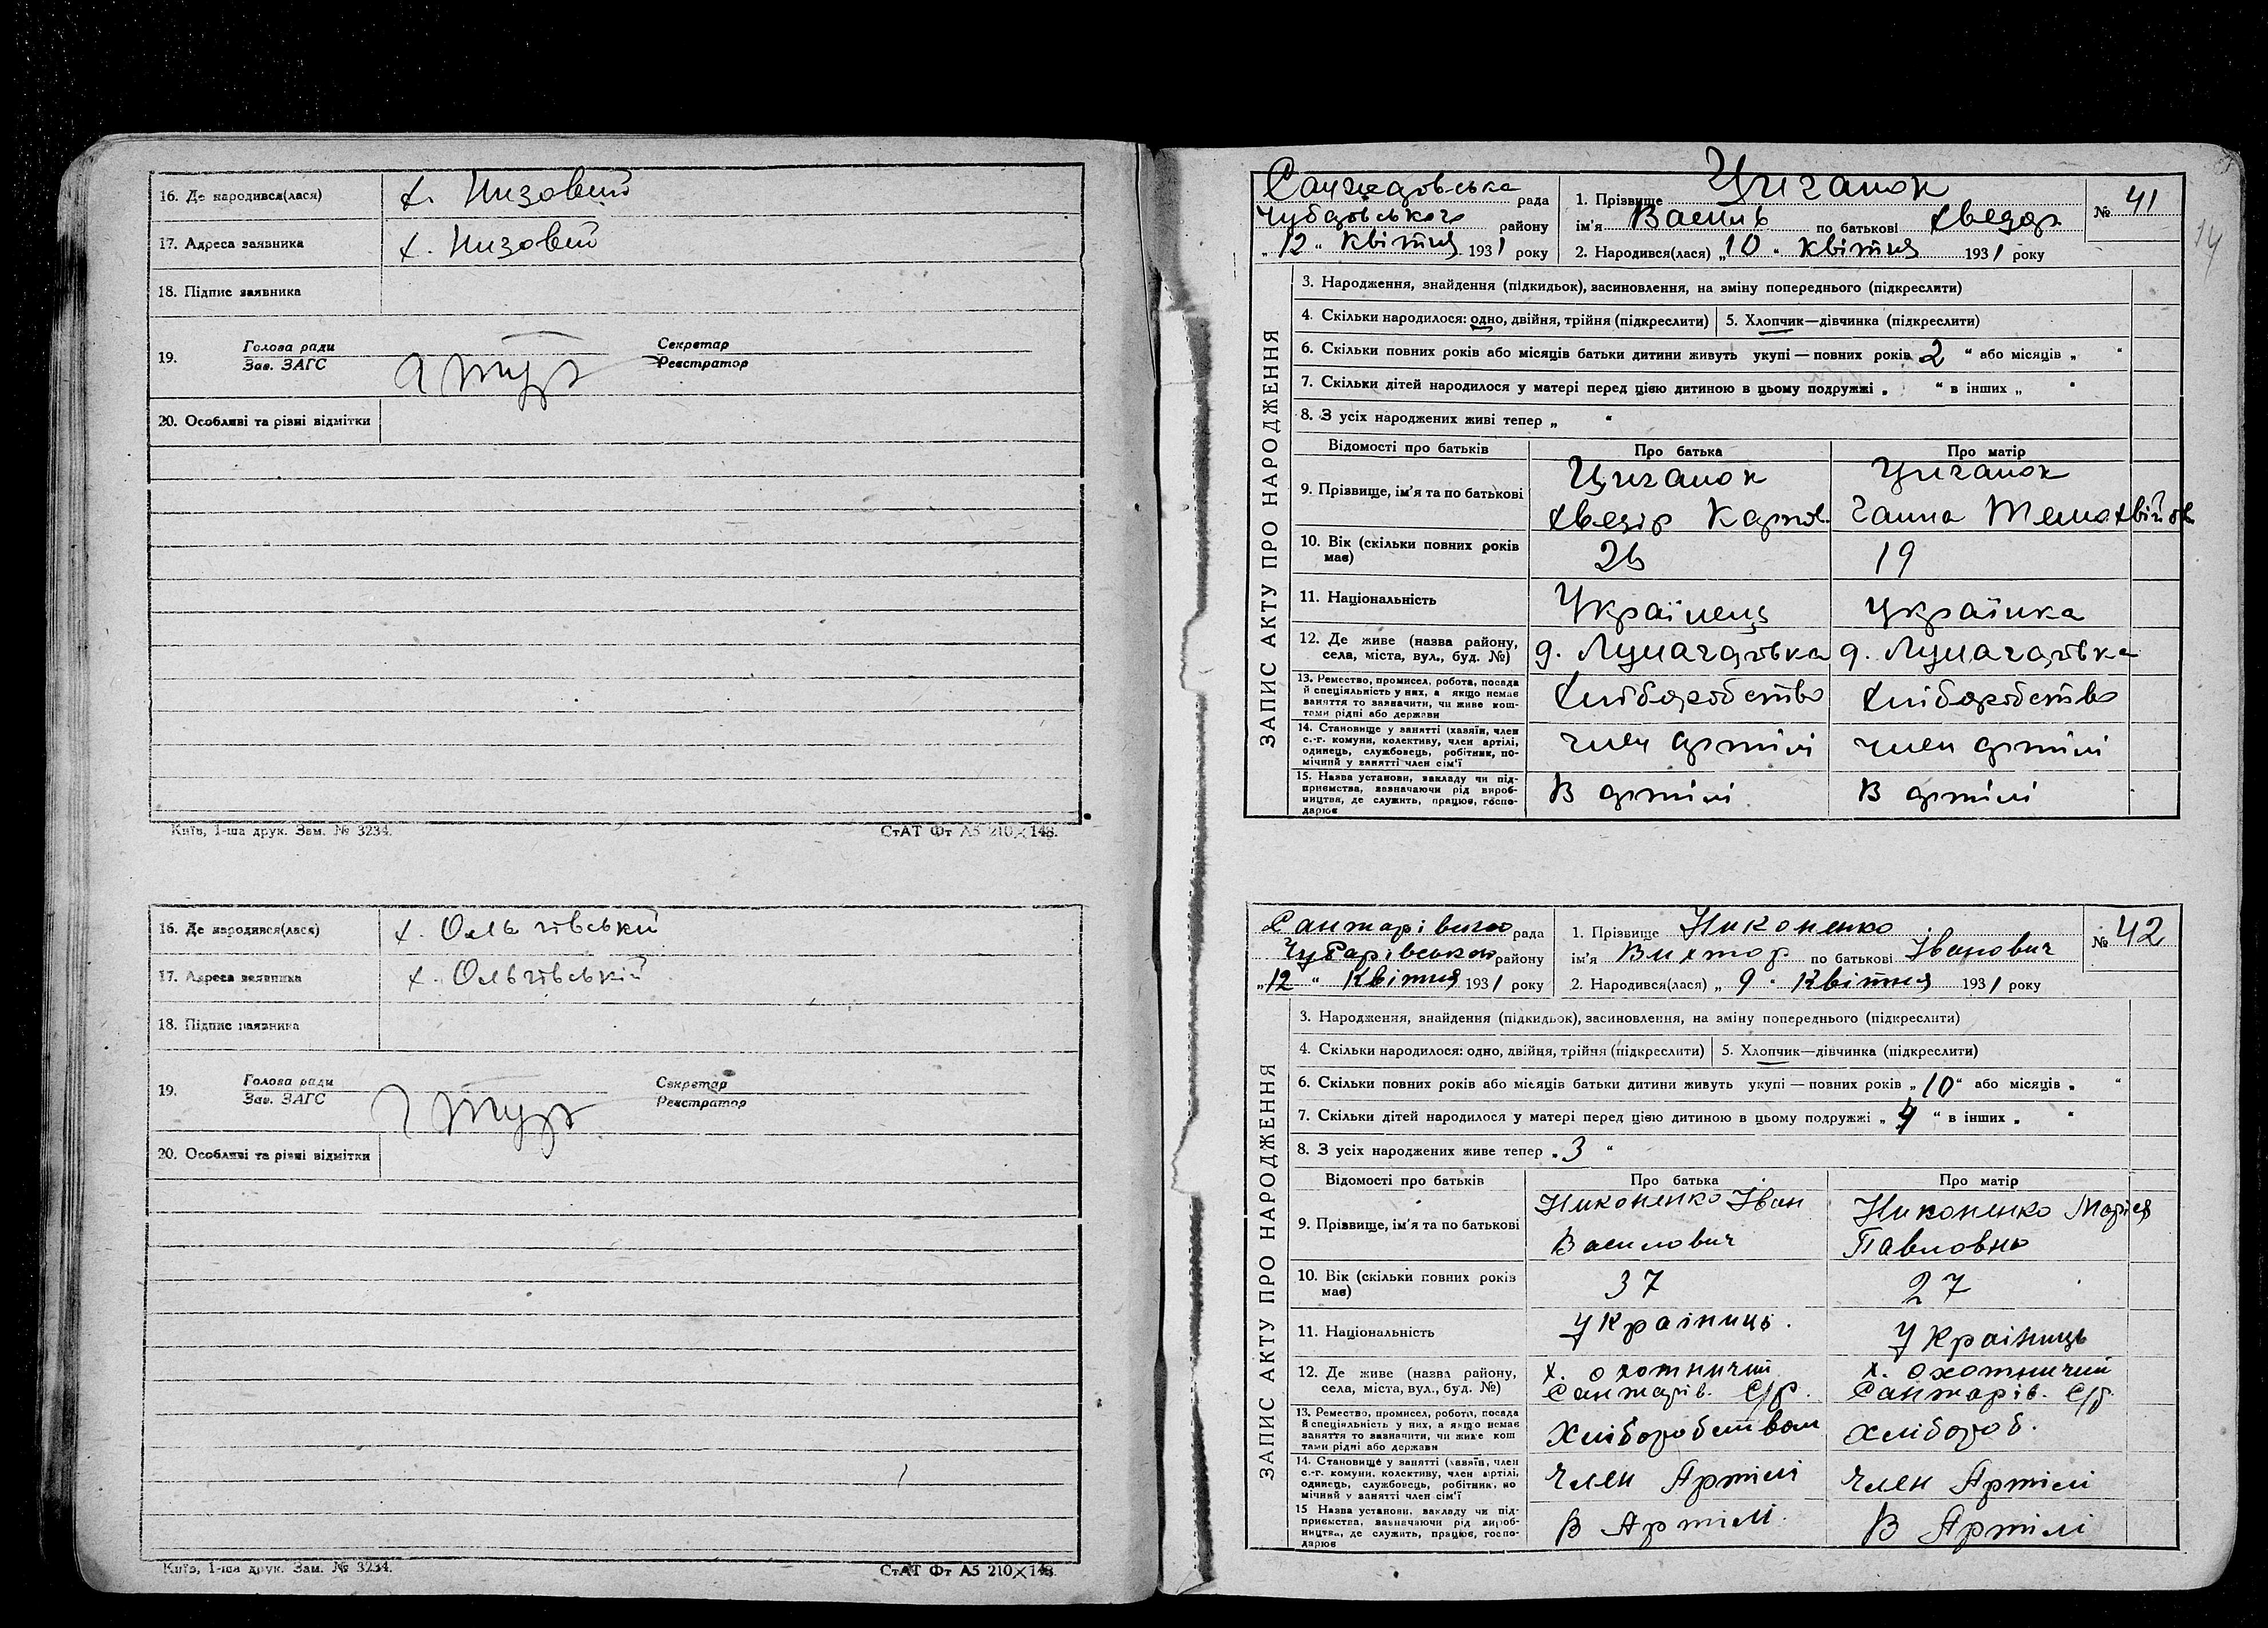 16. Де народився(лася) х. Низовий
17. Адреса заявника х. Низовій
18. Підпис заявника
19. Голова ради
Зав. ЗАГС
Секретар
Реєстратор
20. Особливі та різні відмітки
Київ, 1-ша друк. Зам. № 3234.
СтАТ Фт А5 210×148.
16. Де народився(лася) х. Ольгівський
17. Адреса заявника х. Ольгівській
18. Підпис заявника
19. Голова ради
Зав. ЗАГС
Секретар
Реєстратор
20. Особливі та різні відмітки
Київ, 1-ша друк. Зам. № 3234.
СтАТ Фт А5 210×148.
14
ЗАПИС АКТУ ПРО НАРОДЖЕННЯ
рада
Чубарівського району
„12“ квітня 1931 року
1. Прізвище Циганок
ім'я Василь по батькові Хведор
№ 41
2. Народився(лася) „10“ квітня 1931 року
3. Народження, знайдення (підкидьок), засиновлення, на зміну попереднього (підкреслити)
4. Скільки народилося: одно, двійня, трійня (підкреслити)
5. Хлопчик—дівчинка (підкреслити)
6. Скільки повних років або місяців батьки дитини живуть укупі — повних років 2 “ або місяців „ “
7. Скільки дітей народилося у матері перед цією дитиною в цьому подружжі „ “ в інших „ “
8. З усіх народжених живі тепер „ “
Відомості про батьків
Про батька
Про матір
9. Прізвище, ім'я та по батькові
Циганок
Хведір Карпов.
Циганок
Ганна
10. Вік (скільки повних років має)
26
19
11. Національність
Українець
Українка
12. Де живе (назва району,
села, міста, вул., буд. №)
13. Ремество, промисел, робота, посада
й спеціяльність у них, а якщо немає
заняття то зазначити, чи живе кош-
тами рідні або держави
Хліборобство
Хліборобство
14. Становище у занятті (хазяїн, член
с.-г. комуни, колективу, член артілі,
одинець, службовець, робітник, по-
мічний у занятті член сім'ї
член артілі
член артілі
15. Назва установи, закладу чи під-
приємства, зазначаючи рід вироб-
ництва, де служить, працює, госпо-
дарює
В артілі
В артілі
ЗАПИС АКТУ ПРО НАРОДЖЕННЯ
Санжарівська рада
Чубарівського району
„12“ Квітня 1931 року
1. Прізвище Никоненко
ім'я Виктор по батькові Іванович
№ 42
2. Народився(лася) „9“ Квітня 1931 року
3. Народження, знайдення (підкидьок), засиновлення, на зміну попереднього (підкреслити)
4. Скільки народилося: одно, двійня, трійня (підкреслити)
5. Хлопчик—дівчинка (підкреслити)
6. Скільки повних років або місяців батьки дитини живуть укупі — повних років „10“ або місяців „ “
7. Скільки дітей народилося у матері перед цією дитиною в цьому подружжі „4“ в інших „ “
8. З усіх народжених живе тепер „3“
Відомості про батьків
Про батька
Про матір
9. Прізвище, ім'я та по батькові
Никоненко Іван
Василович
Никоненко Марія
Павловна
10. Вік (скільки повних років має)
37
27
11. Національність
Україниць
Україниць
12. Де живе (назва району,
села, міста, вул., буд. №)
х. Охотничий
Санжарів. С/р.
х. Охотничий
Санжарів. С/р.
13. Ремество, промисел, робота, посада
й спеціяльність у них, а якщо немає
заняття то зазначити, чи живе кош
тами рідні або держави
Хліборобством
Хлібороб.
14. Становище у занятті (хазяїн, член
с.-г. комуни, колективу, член артілі,
одинець, службовець, робітник, по
мічний у занятті член сім'ї
Член Артілі
Член Артілі
15 Назва установи, закладу чи під-
приємства, зазначаючи рід вироб-
ництва, де служить, працює, госпо-
дарює
В Артілі
В Артілі